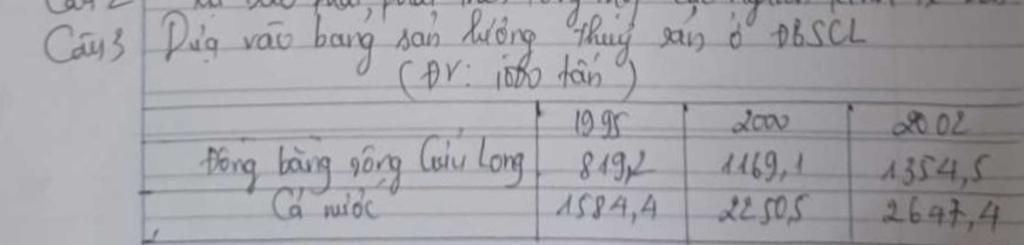 Câu 3 Dựa vào bang sản lượng thuỷ sản ở ĐBSCL
(ĐV: 1000 tấn)
1995 2000 2002
Đồng bằng sông Cửu Long 819,2 1169,1 1354,5
Cả nước 1584,4 2250,5 2647,4